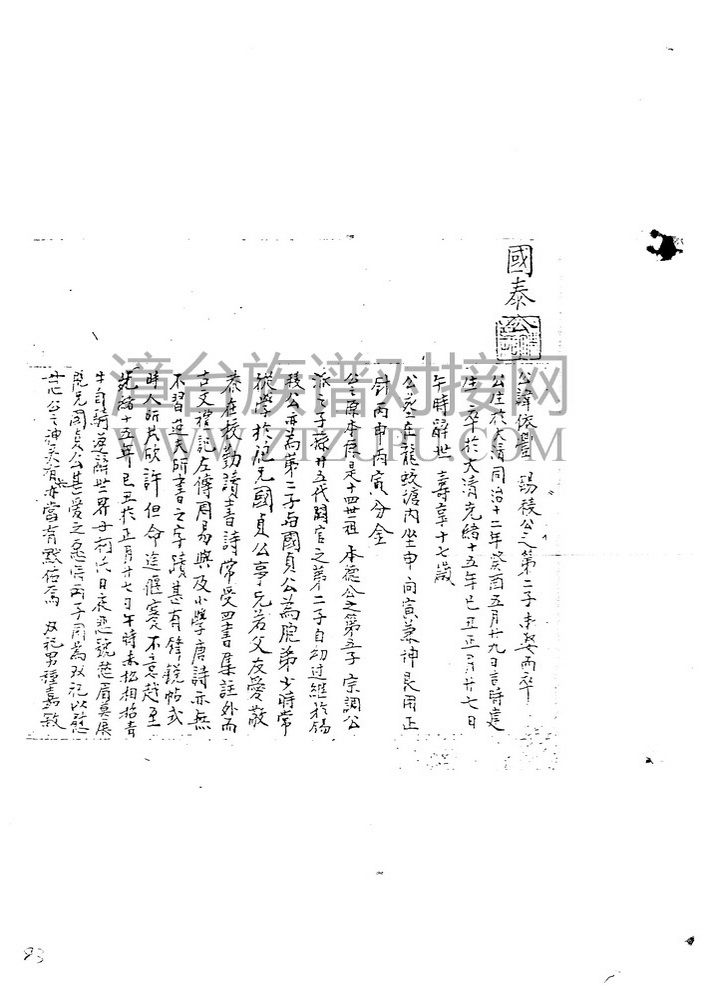 國泰公
公諱依豐 錫稜公之第二子未娶而卒
公生於大清同治十二年癸酉五月廿九日吉時建
生 卒於大清光緒十五年己丑正月廿七日
午時辭世 壽享十七歲
公定在龍蛟瀘內坐申向寅兼坤艮用正
針丙申丙寅分金
公之原本原是十四世祖 本德公之第五子 宗調公
派之子孫廿五代開官之第二子自幼过継於錫
稜公亦為第二子与國貞公為胞弟少時常
從學於胞兄國貞公事兄若父友愛敬
恭在校勤讀書詩常受四書集註外而
古文禮記左傳周易與及小學唐詩亦無
不習進夫所書之字蹟甚有鋒鋭帖式
時人所共欣許但命途偃蹇不意越至
光緒十五年己丑於正月廿七日午時未招相招青
牛司騎返辭世界母柯氏日夜悲號愁眉莫展
胞兄國貞公甚愛之急將丙子同為双祀以慰
其心公之神灵有知亦當有默佑焉 双祀男種嘉敬
漳台族谱对接网
WWW.ZIZUPU.CN
93